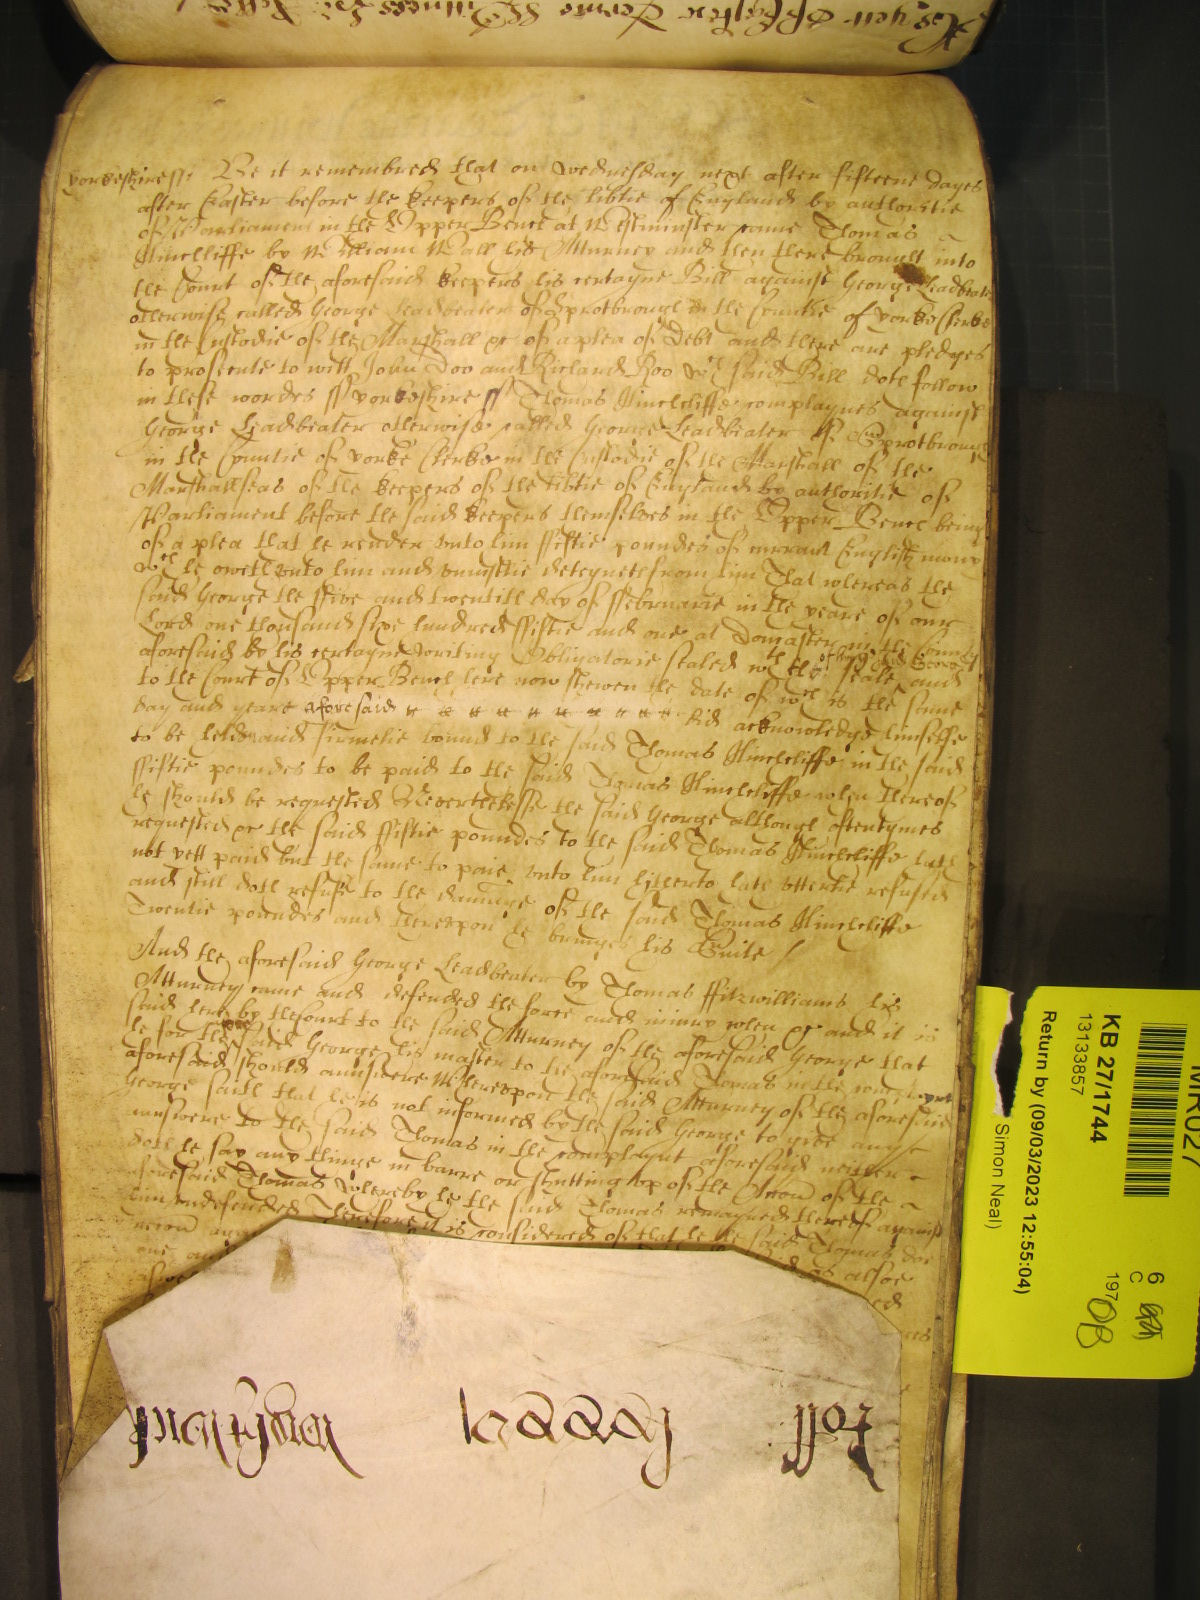 Yorkeshire ss: Be it remembred that on Wednesday next after fifteene dayes
after Easter before the keepers of the libtie of England by authoritie
of Parliament in the Upper Bench at Westminster came Thomas
Hinchcliffe by William Wall his Atturney and then there brought into
the Court of the aforesaid keepers his certayne Bill against George Leadbeater
otherwise called George Leadbeater of Sprotbrough in the Countie of Yorke Clerke
in the Custodie of the Marshall &c of a plea of Debt and there are pledges
to prosecute to witt John Doo and Richard Roo wch said Bill doth follow
in these wordes ss Yorkeshire ss Thomas Hinchcliffe complaynes against
George Leadbeater otherwise called George Leadbeater of Sprotbrough
in the Countie of Yorke Clerke in the Custodie of the Marshall of the
Marshallseas of the keepers of the libtie of England by authoritie of
Parliament before the said keepers themselves in the Upper Bench being
of a plea that he render unto him ffiftie poundes of currant English mony
wch he oweth unto him and uniustlie deteyneth from him That whereas the
said George the ffive and twentith day of ffebruarie in the yeare of our
Lord one thousand sixe hundred ffiftie and one at Doncaster in the County
aforesaid by his certayne writing Obligatorie sealed wth the seale of him the said George and
to the Court of Upper Bench here now shewen the date of wch is the same
day and yeare aforesaid did acknowledge himselfe
to be held and firmelie bound to the said Thomas Hinchcliffe in the said
ffiftie poundes to be paid to the said Thomas Hinchcliffe when thereof
he should be requested Neverthelesse the said George although oftentymes
requested &c the said ffiftie poundes to the said Thomas Hinchcliffe hath
not yett paid but the same to paie unto him hitherto hath utterlie refused
and still doth refuse to the damage of the said Thomas Hinchcliffe
Twentie poundes and thereupon he bringes his Suite /
And the aforesaid George Leadbeater by Thomas ffitzwilliams his
Atturney came and defended the force and iniury when &c and it is
said here by the Court to the said Atturney of the aforesaid George that
he for the said George his master to the aforesaid Thomas in the complaynt
aforesaid should answere Whereupon the said Atturney of the aforesaid
George saith that he is not informed by the said George to give any
answere to the said Thomas in the complaynt aforesaid neither
doth he say any thinge in barre or shutting up of the Accon of the
aforesaid Thomas whereby he the said Thomas remayned thereof against
him undefended Therefore it is considered of that he the said Thomas doe
recover
also
KB 27/1744
13133857
Return by (09/03/2023 12:55:04)
Simon Neal)
6
C
197